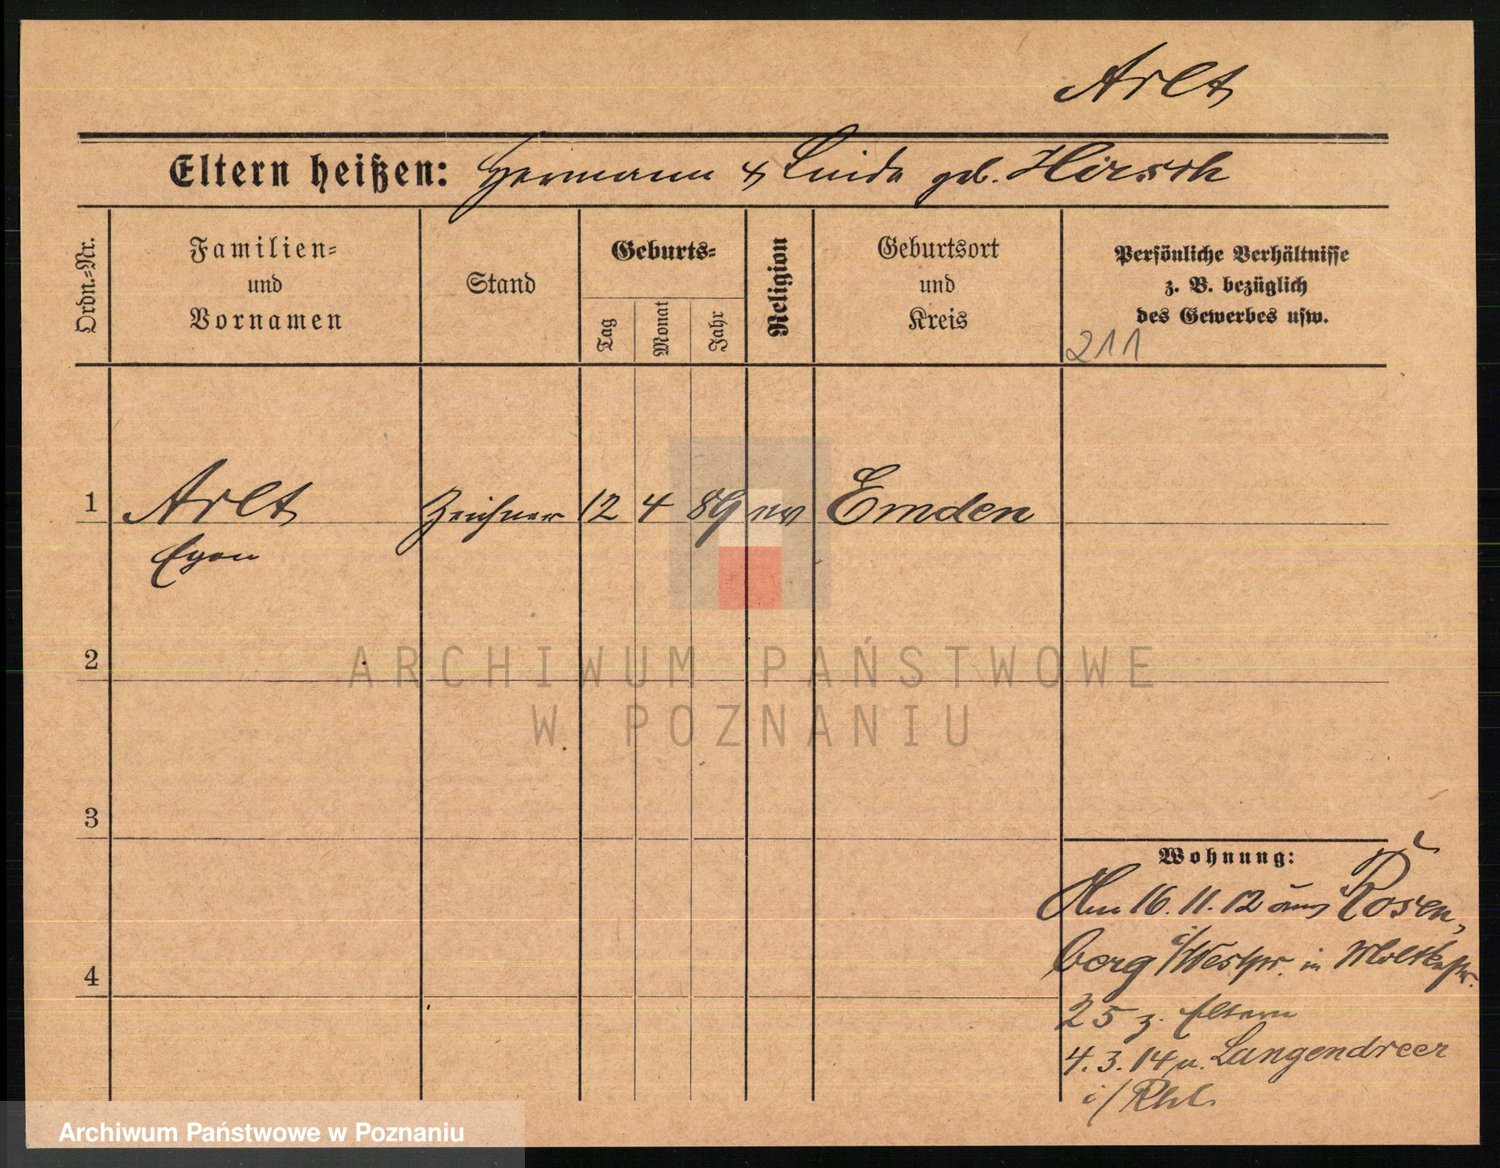 Arlt
Eltern heißen: Hermann & Linda geb. Hirsch
Ordn.=Nr.
Familien=
und
Vornamen
Stand
Geburts=
Tag
Monat
Jahr
Religion
Geburtsort
und
Kreis
Persönliche Verhältnisse
z. B. bezüglich
des Gewerbes usw.
211
1 Arlt Zeichner 12 4 89 ev Emden
Egon
2
3
4
Wohnung:
Am 16.11.12 aus Rosen,
berg i/Westpr. in Moltkestr.
25 z. Eltern
4.3.14 n. Langendreer
i/ Rhl.
ARCHIWUM PAŃSTWOWE
W POZNANIU
Archiwum Państwowe w Poznaniu